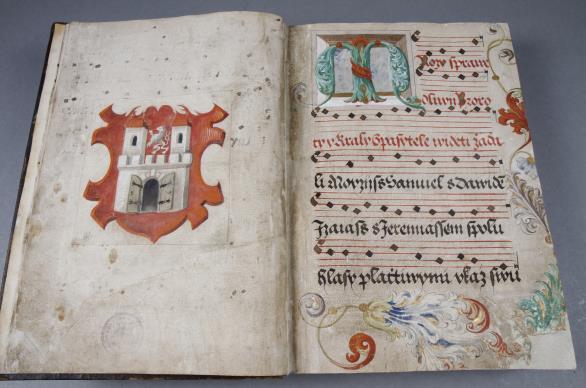 Mnozy sprawe
dliwij Proro
ty y Kraly Spasytele wideti žáda
li Moyžijss Samuel s Dawidẽ
Izaiass s Jeremiassem spolu
hlasy plačtiwymi vkaž swu